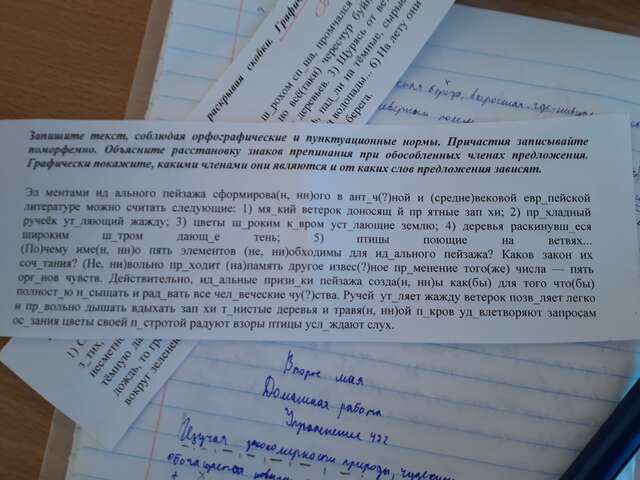 раскрывая скобки. Графич
рохом сп_ша, промчался
но всё(таки) чересчур буйн
деревьев. 3) Щурясь от ве
пад_ли на тёмные, сырые
водопады... 6) На лету они
берега.
Запишите текст, соблюдая орфографические и пунктуационные нормы. Причастия записывайте
поморфемно. Объясните расстановку знаков препинания при обособленных членах предложения.
Графически покажите, какими членами они являются и от каких слов предложения зависят.
Эл_ментами ид_ального пейзажа сформирова(н, нн)ого в ант_ч(?)ной и (средне)вековой евр_пейской
литературе можно считать следующие: 1) мя_кий ветерок доносящ_й пр_ятные зап_хи; 2) пр_хладный
ручеёк ут_ляющий жажду; 3) цветы ш_роким к_вром уст_лающие землю; 4) деревья раскинувш_еся
широким ш_тром дающ_е тень; 5) птицы поющие на ветвях...
(По)чему име(н, нн)о пять элементов (не, ни)обходимы для ид_ального пейзажа? Каков закон их
соч_тания? (Не, ни)вольно пр_ходит (на)память другое извес(?)ное пр_менение того(же) числа — пять
орг_нов чувств. Действительно, ид_альные призн_ки пейзажа созда(н, нн)ы как(бы) для того что(бы)
полност_ю н_сыщать и рад_вать все чел_веческие чу(?)ства. Ручей ут_ляет жажду ветерок позв_ляет легко
и пр_вольно дышать вдыхать зап_хи т_нистые деревья и травя(н, нн)ой п_кров уд_влетворяют запросам
ос_зания цветы своей п_стротой радуют взоры птицы усл_ждают слух.
1) С
з_тих,
несметно
тёмную да
дождь, то гр
вокруг зелене
Второе мая
Домашняя работа
Упражнение 432
Изучая закономерности природы,